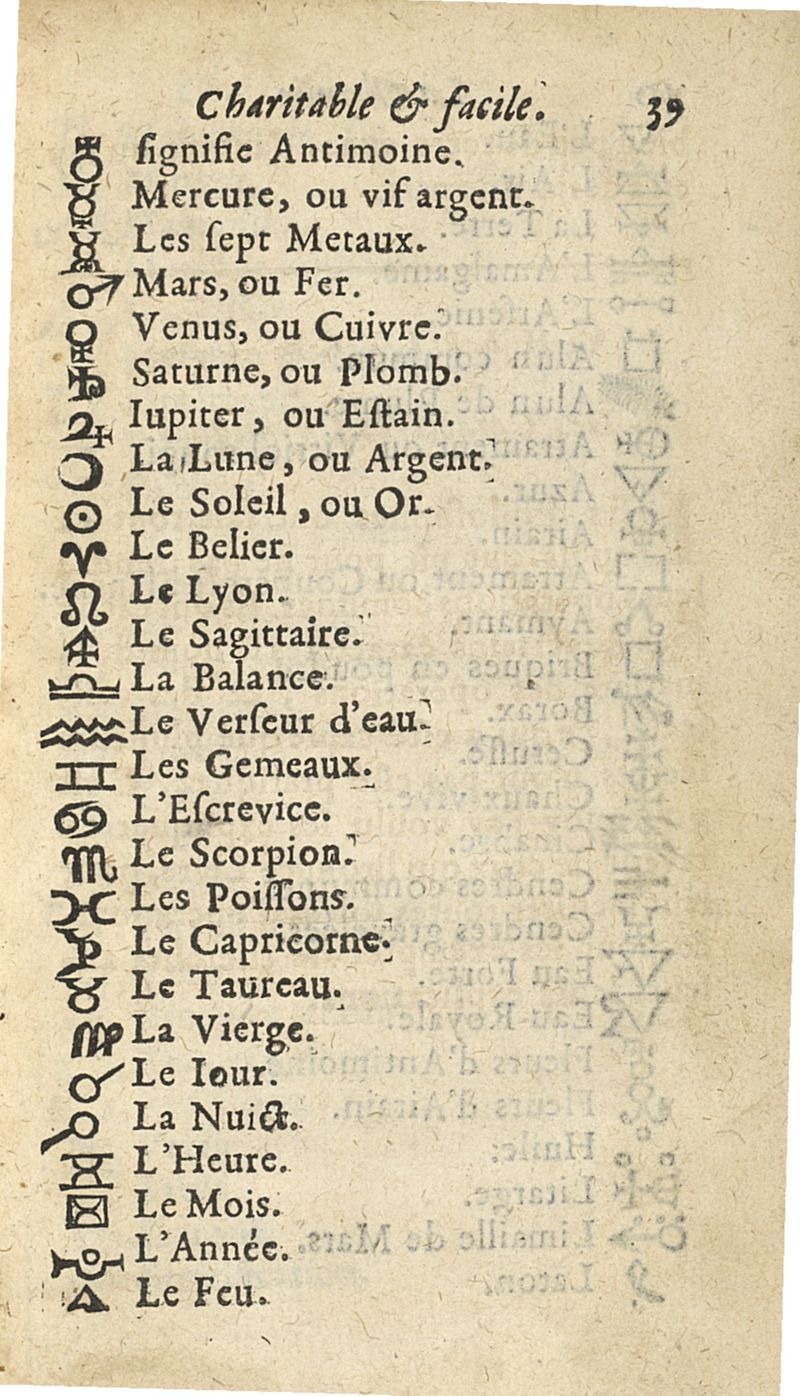 Charitable & facile. 39
♁ ſignifie Antimoine.
☿ Mercure, ou vif argent.
Les ſept Metaux.
♂ Mars, ou Fer.
♀ Venus, ou Cuivre.
♄ Saturne, ou Plomb.
♃ Iupiter, ou Eſtain.
☽ La Lune, ou Argent.
☉ Le Soleil, ou Or.
♈ Le Belier.
♌ Le Lyon.
♐ Le Sagittaire.
♎ La Balance.
♒ Le Verſeur d'eau.
♊ Les Gemeaux.
♋ L'Eſcrevice.
♏ Le Scorpion.
♓ Les Poiſſons.
♑ Le Capricorne.
♉ Le Taureau.
♍ La Vierge.
Le Iour.
La Nuict.
L'Heure.
Le Mois.
L'Année.
🜂 Le Feu.